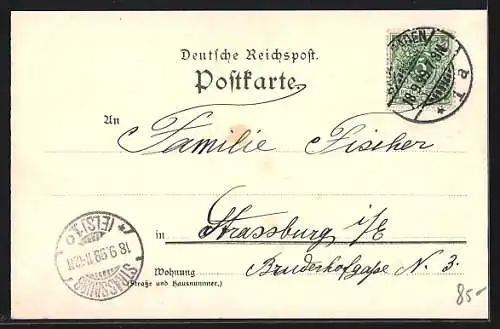 Deutsche Reichspost.
Postkarte.
An
Familie Fischer
in Strassburg i/E
Wohnung Bruderhofgaße N. 3.
(Straße und Hausnummer.)
18.9.99
STRASSBURG
18.9.99.11-12N
* (ELS) 1 o *
85-